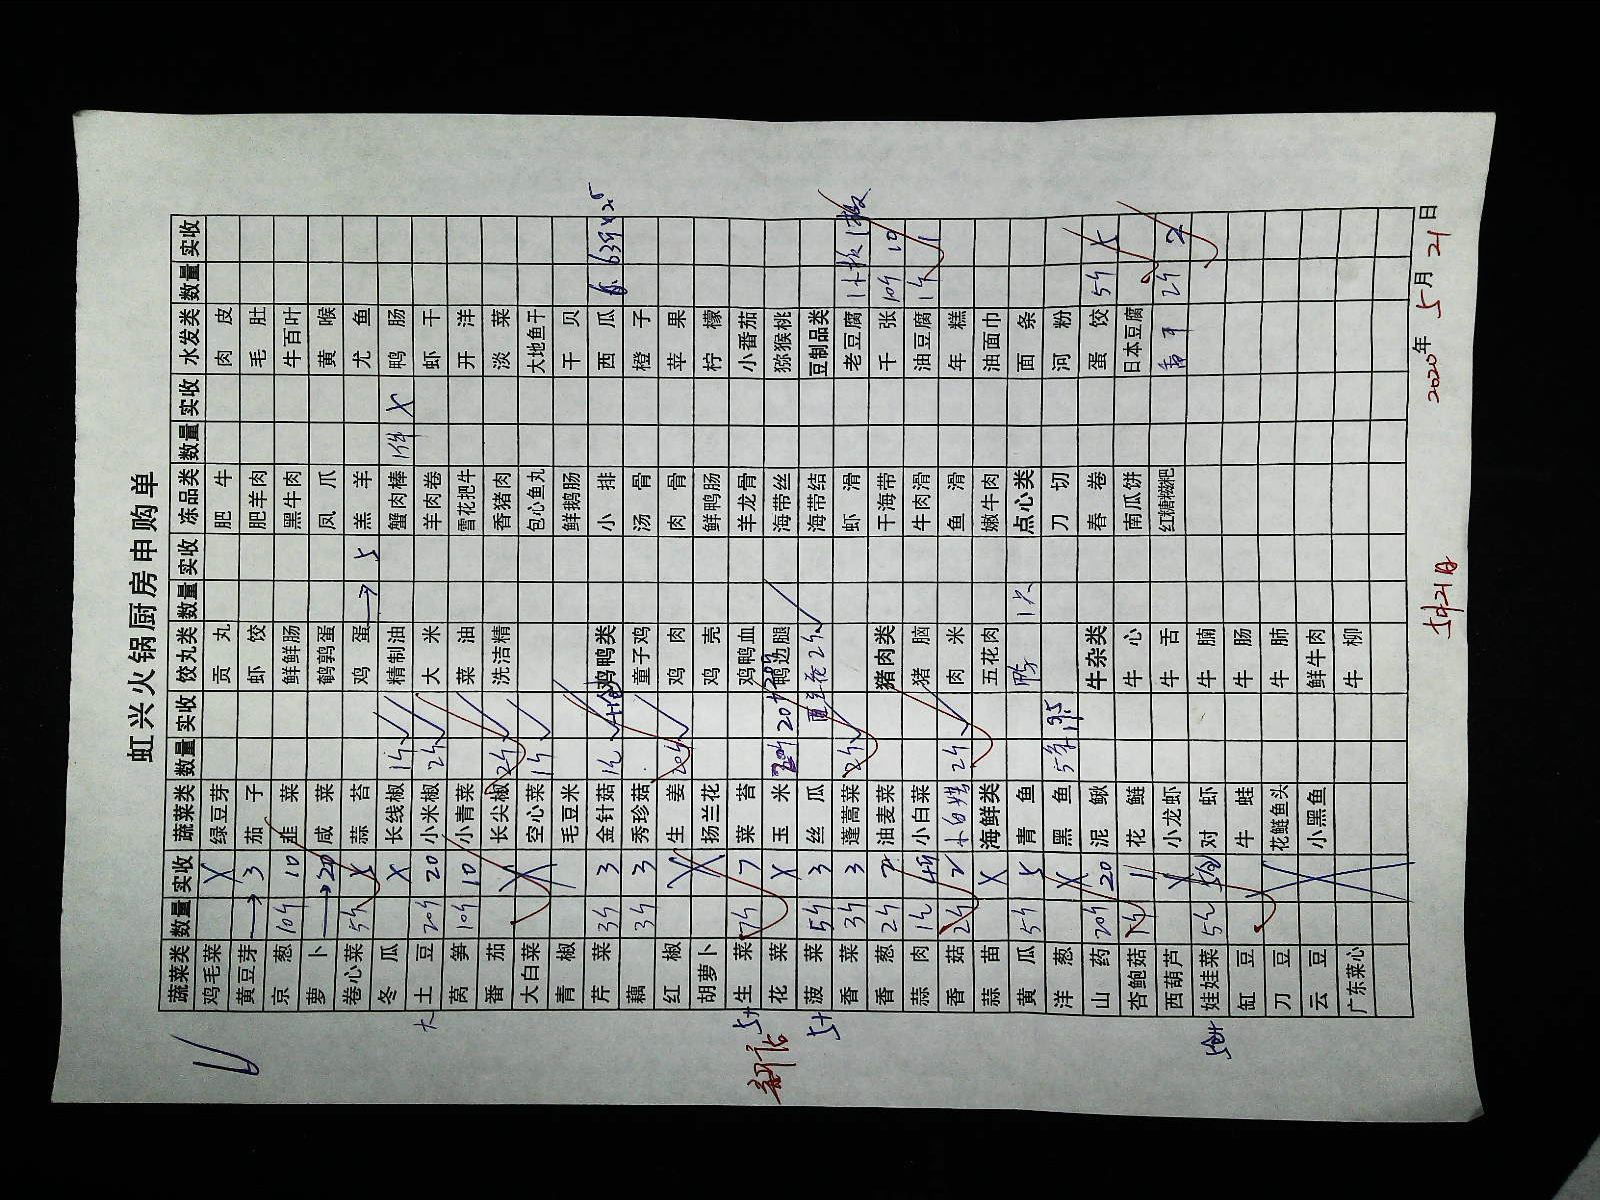 虹兴火锅厨房申购单
蔬菜类 数量 实收 蔬菜类 数量 实收 饺丸类 数量 实收 冻品类 数量 实收 水发类 数量 实收
鸡毛菜 X 绿豆芽 贡丸 肥牛 肉皮
黄豆芽 → 3 茄子 虾饺 肥羊肉 毛肚
京葱 10斤 10 韭菜 鲜鲜肠 黑牛肉 牛百叶
萝卜 → 20 咸菜 鹌鹑蛋 凤爪 黄喉
卷心菜 5斤 X 蒜苔 鸡蛋 → 5 羔羊 尤鱼
冬瓜 X 长线椒 1斤 精制油 蟹肉棒 1件 X 鸭肠
大 土豆 20斤 20 小米椒 2斤 大米 羊肉卷 虾干
莴笋 10斤 10 小青菜 菜油 雪花把牛 开洋
番茄 长尖椒 2斤 洗洁精 香猪肉 淡菜
大白菜 X 空心菜 1斤 包心鱼丸 大地鱼干
青椒 毛豆米 鲜鹅肠 干贝
芹菜 3斤 3 金针菇 鸡鸭类 小排 西瓜
藕 3斤 3 秀珍菇 童子鸡 汤骨 橙子
红椒 X 生姜 20斤 鸡肉 肉骨 苹果
胡萝卜 扬兰花 鸡壳 鲜鸭肠 柠檬
生菜 7斤 7 菜苔 鸡鸭血 羊龙骨 小番茄
花菜 X 玉米 20斤 鸭边腿 海带丝 猕猴桃
菠菜 5斤 3 丝瓜 海带结 豆制品类
香菜 3斤 3 蓬蒿菜 2斤 虾滑 老豆腐
香葱 2斤 2 油麦菜 猪肉类 干海带 千张 10斤 10
蒜肉 小白菜 猪脑 牛肉滑 油豆腐 1
香菇 2斤 2 2斤 肉米 鱼滑 年糕
蒜苗 X 海鲜类 五花肉 嫩牛肉 油面巾
黄瓜 5斤 5 青鱼 点心类 面条
洋葱 X 黑鱼 刀切 河粉
山药 20斤 20 泥鳅 牛杂类 春卷 蛋饺 5斤
杏鲍菇 花鲢 牛心 南瓜饼 日本豆腐
西葫芦 X 小龙虾 牛舌 红糖糍粑 2斤 2
娃娃菜 对虾 牛腩
缸豆 牛蛙 牛肠
刀豆 花鲢鱼头 牛肺
云豆 小黑鱼 鲜牛肉
广东菜心 牛柳
5月21日
2020年5月21日